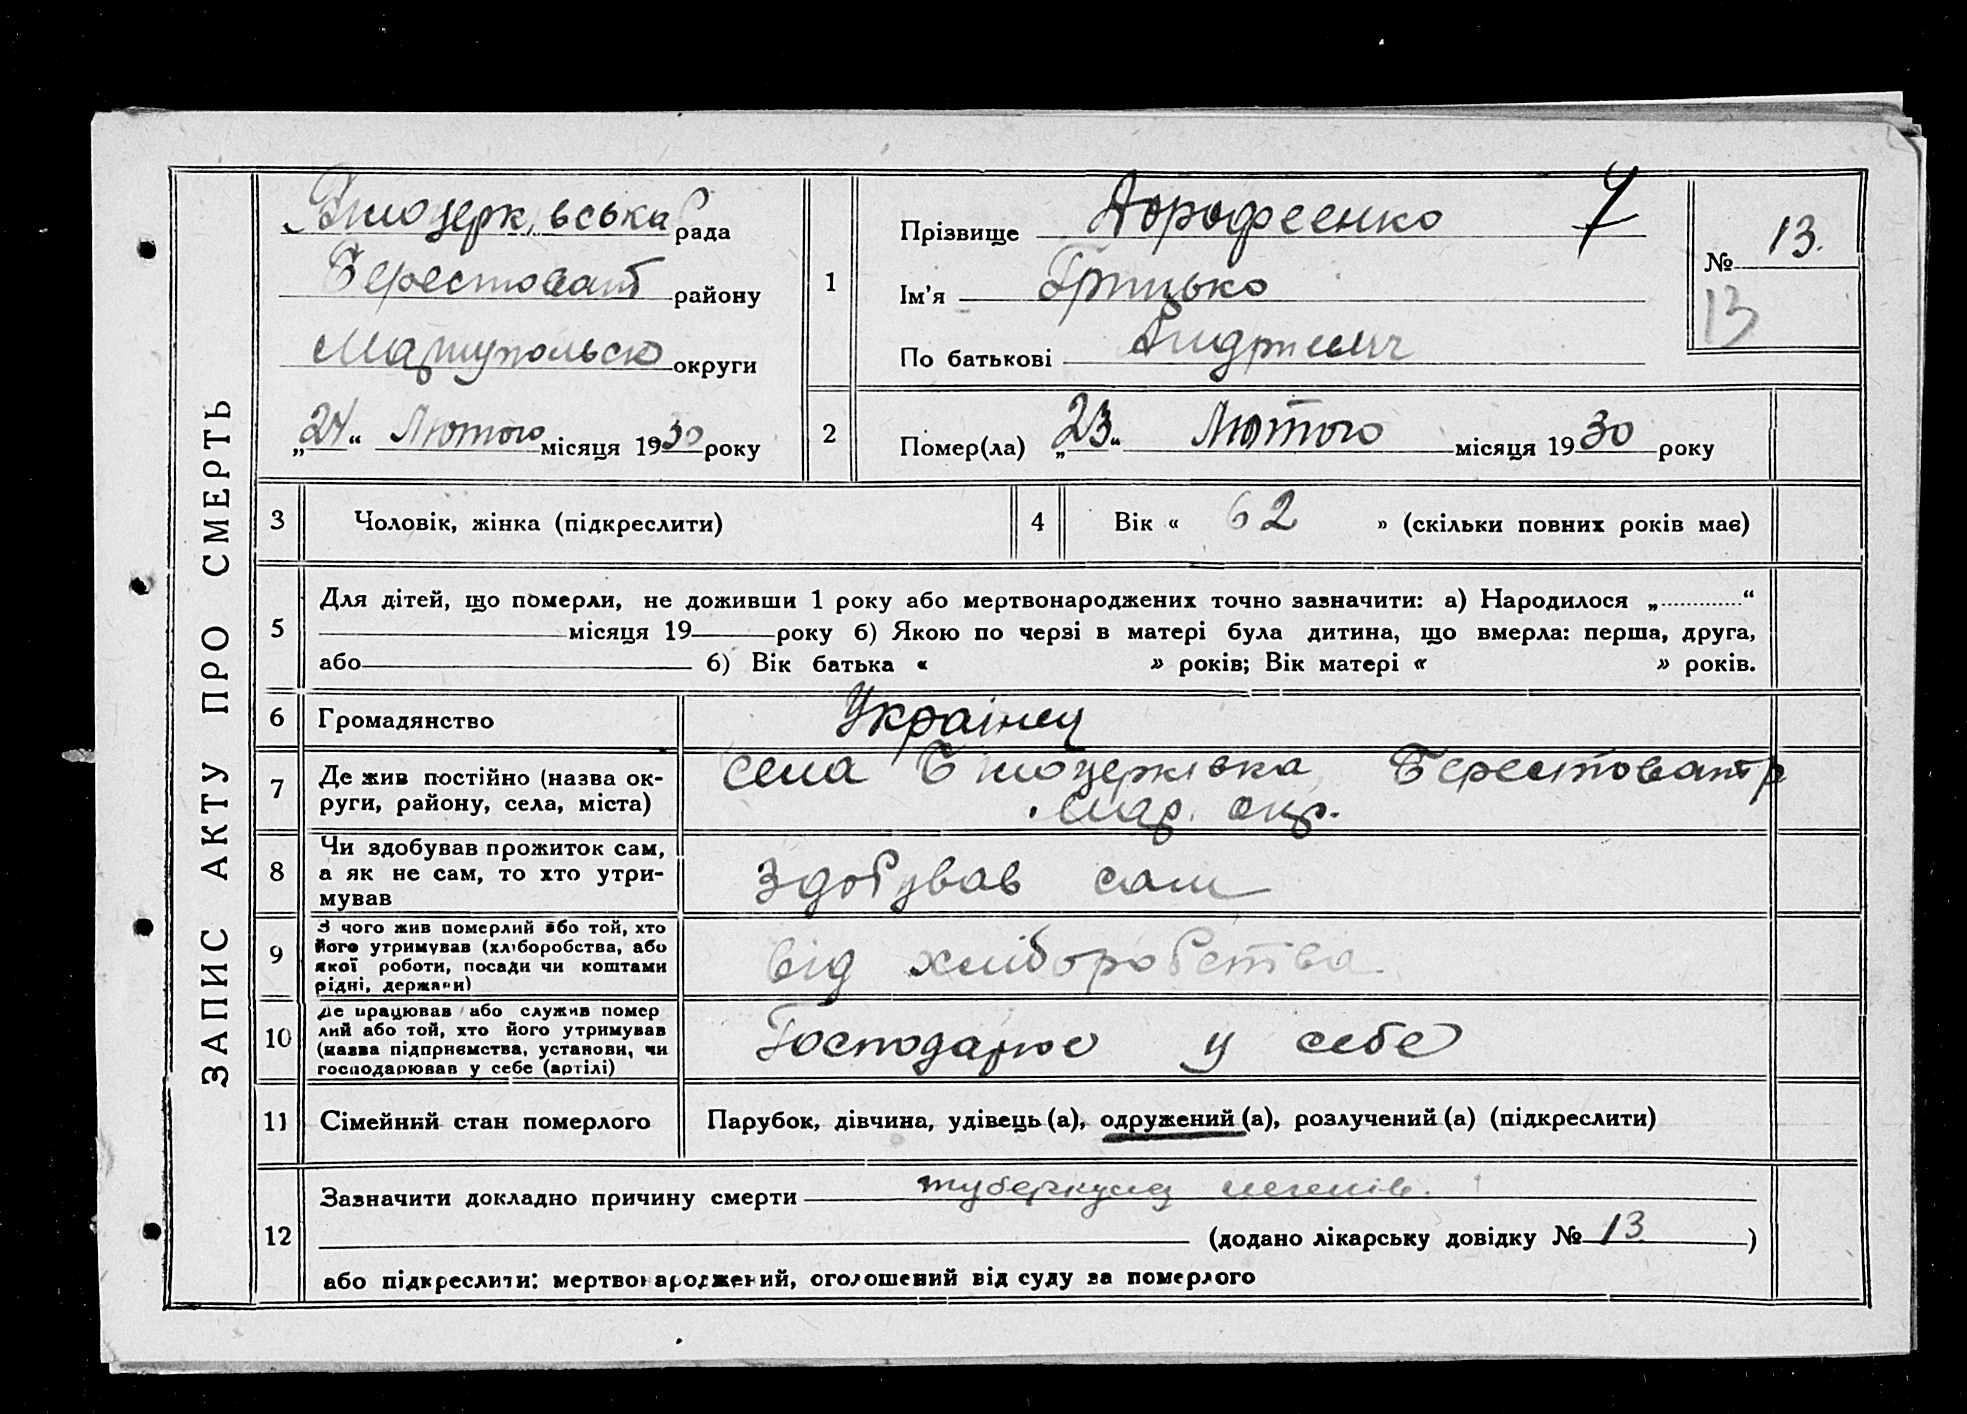 ЗАПИС АКТУ ПРО СМЕРТЬ
Білоцерківська рада
Берестоват району
Маріупольсько округи
„24“ Лютого місяця 1930 року
1
Прізвище Дорофеенко
Ім'я Грицько
По батькові Андрієвич
№ 13.
13
2
Помер(ла) „23“ Лютого місяця 1930 року
3 Чоловік, жінка (підкреслити)
4 Вік « 62 » (скільки повних років має)
5
Для дітей, що померли, не доживши 1 року або мертвонароджених точно зазначити: а) Народилося „ “
місяця 19 року б) Якою по черзі в матері була дитина, що вмерла: перша, друга,
або б) Вік батька « » років; Вік матері « » років.
6 Громадянство Украінец
7 Де жив постійно (назва ок-
руги, району, села, міста)
села Білоцерківка Берестоват р
Мар. окр.
8 Чи здобував прожиток сам,
а як не сам, то хто утри-
мував
здобував сам
9 З чого жив померлий або той, хто
його утримував (хліборобства, або
якої роботи, посади чи коштами
рідні, держави)
від хліборобства
10 Де працював або служив помер
лий або той, хто його утримував
(назва підприємства, установи, чи
господарював у себе (артілі)
Господарює у себе
11 Сімейний стан померлого Парубок, дівчина, удівець (а), одружений (а), розлучений (а) (підкреслити)
12
Зазначити докладно причину смерти туберкулез легенів.
(додано лікарську довідку № 13 )
або підкреслити: мертвонароджений, оголошений від суду за померлого